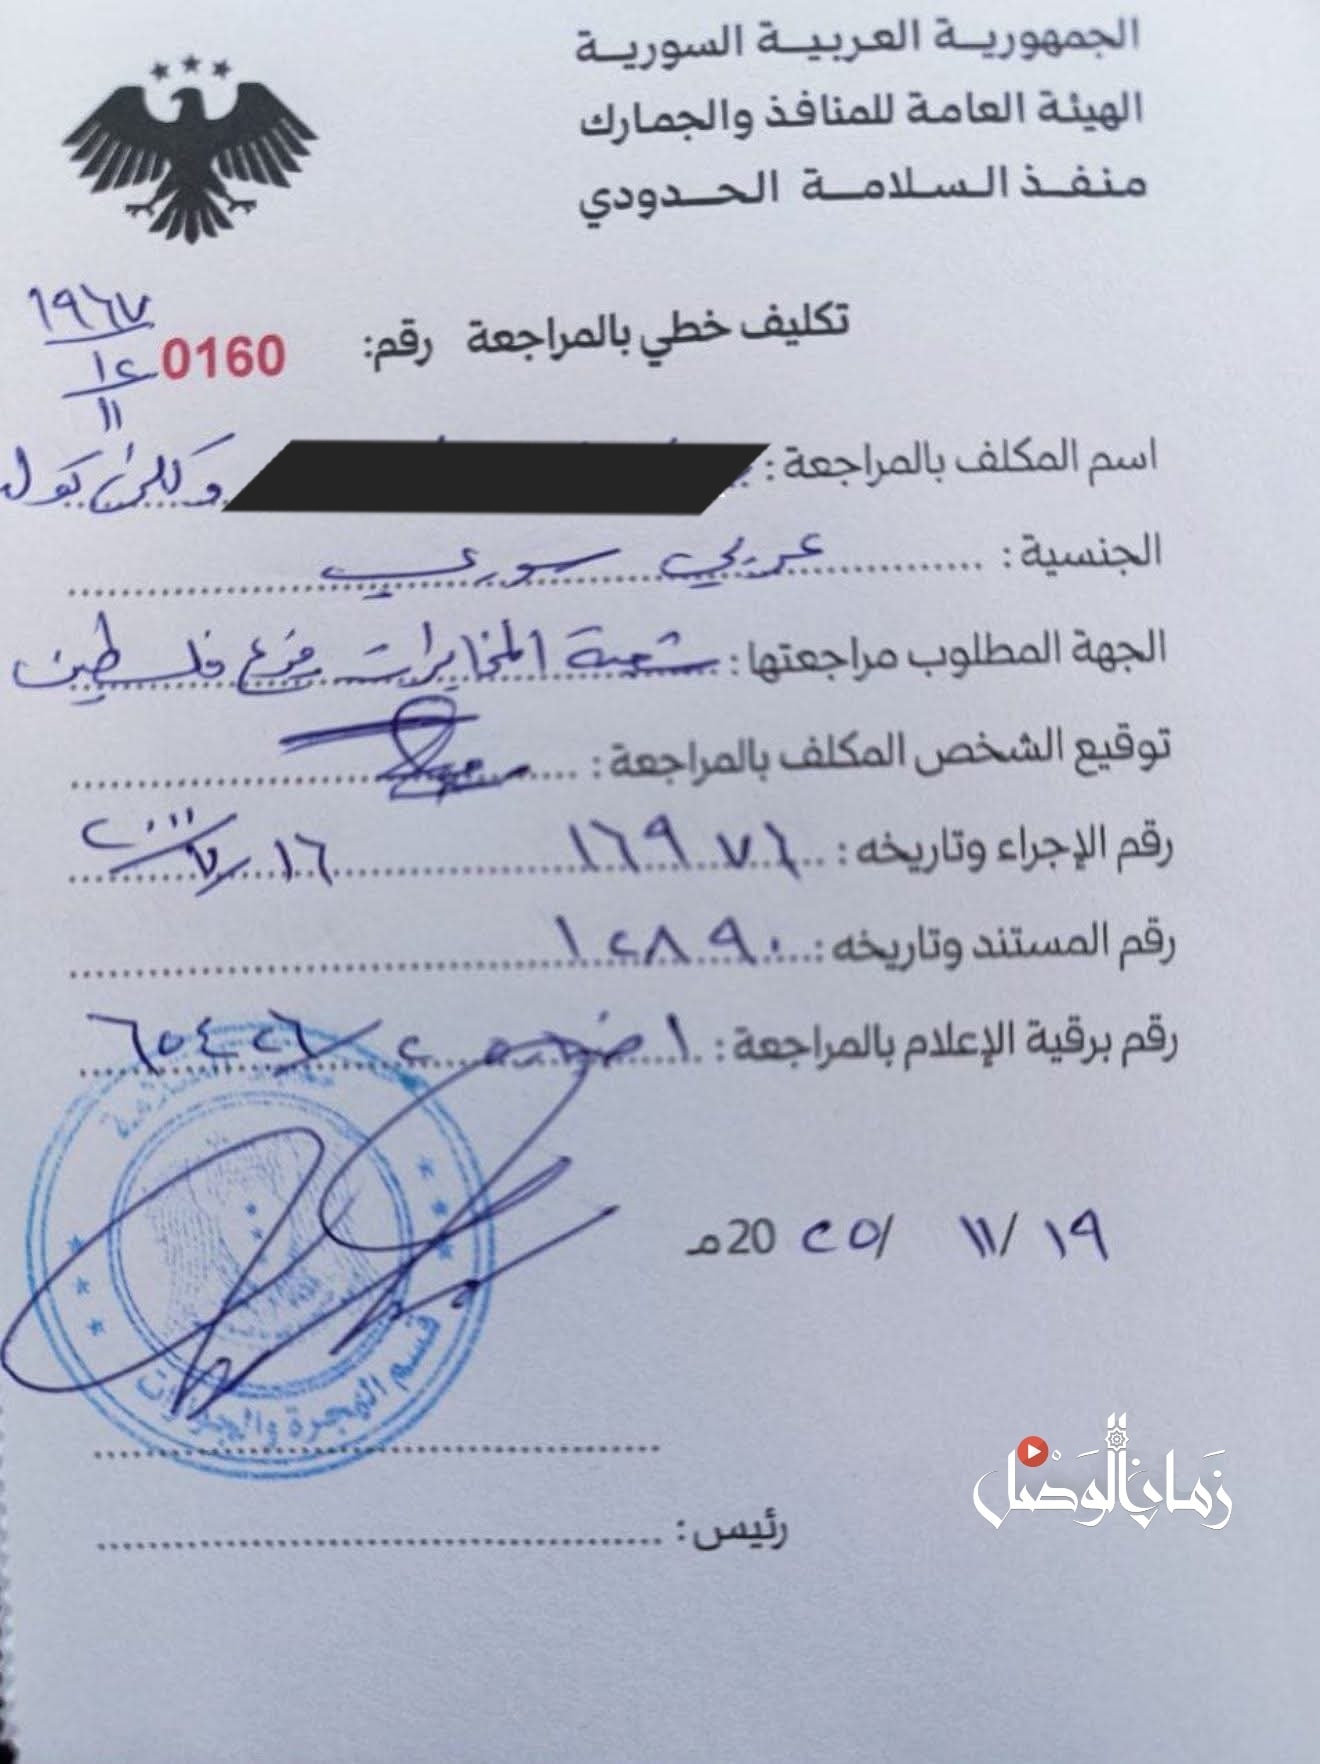 الجمهورية العربية السورية
الهيئة العامة للمنافذ والجمارك
منفذ السلامة الحدودي
تكليف خطي بالمراجعة رقم: 0160
١٩٦٧
١٢
١١
اسم المكلف بالمراجعة:
الجنسية: عربي سوري
الجهة المطلوب مراجعتها: شعبة المخابرات فرع فلسطين
توقيع الشخص المكلف بالمراجعة:
رقم الإجراء وتاريخه: ١٦٩٧٦ ١٦/٧/٢٠١١
رقم المستند وتاريخه: ١٢٨٩٠
رقم برقية الإعلام بالمراجعة:
١٩/ ١١/ ٢٥ 20مـ
قسم الهجرة والجوازات
رئيس:
زمان الوصل